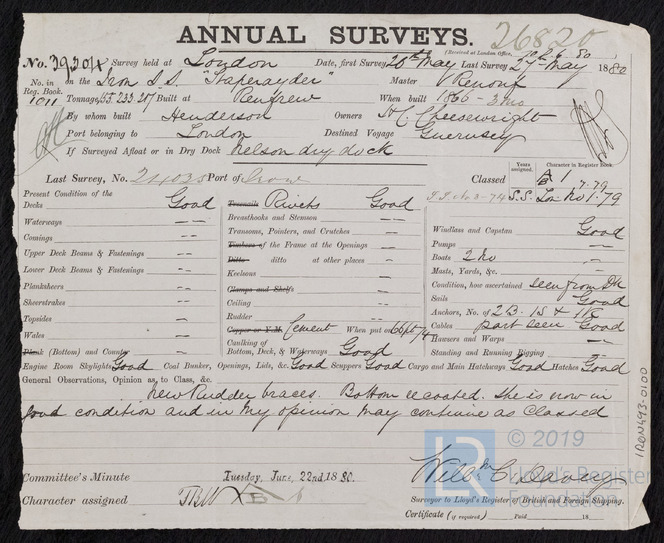 ANNUAL SURVEYS.
26820
(Received at London Office,
No. 39304 Survey held at London Date, first Survey 20th May Last Survey 27th May 1880
No. in Reg. Book. 1011 on the Iron S.S. Master Renouf
Tonnage Built at Renfrew When built 1866 - 3 mo
By whom built Henderson Owners Cheeswright
Port belonging to London Destined Voyage Guernsey
If Surveyed Afloat or in Dry Dock Nelson dry dock
Last Survey, No. 24035 Port of Classed
Years assigned. Character in Register Book.
A 1
7.79
S.S. Lon No 1.79
Present Condition of the
Decks Good Treenails Rivets Good
Waterways Breasthooks and Stemson Windlass and Capstan Good
Comings Transoms, Pointers, and Crutches Pumps
Upper Deck Beams & Fastenings Timbers of the Frame at the Openings Boats 2 No
Lower Deck Beams & Fastenings Ditto ditto at other places Masts, Yards, &c.
Planksheers Keelsons Condition, how ascertained seen from Dk
Sheerstrakes Clamps and Shelfs Sails Good
Topsides Ceiling Anchors, No. of 2 B. 1 S & 1 K
Wales Rudder Cables part seen Good
Plank (Bottom) and Counter Copper or Y.M. Cement When put on Hawsers and Warps
Caulking of Bottom, Deck, & Waterways Good Standing and Running Rigging
Engine Room Skylights Good Coal Bunker, Openings, Lids, &c. Good Scuppers Good Cargo and Main Hatchways Good Hatches Good
General Observations, Opinion as to Class, &c.
New Rudder braces. Bottom recoated. She is now in
good condition and in my opinion may continue as Classed
© 2019
Lloyd's Register
Foundation
LR
Committee's Minute Tuesday, June, 22nd, 1880.
Character assigned
Willm C. Davey
Surveyor to Lloyd's Register of British and Foreign Shipping.
Certificate (if required) Paid 18
IRON493-0100